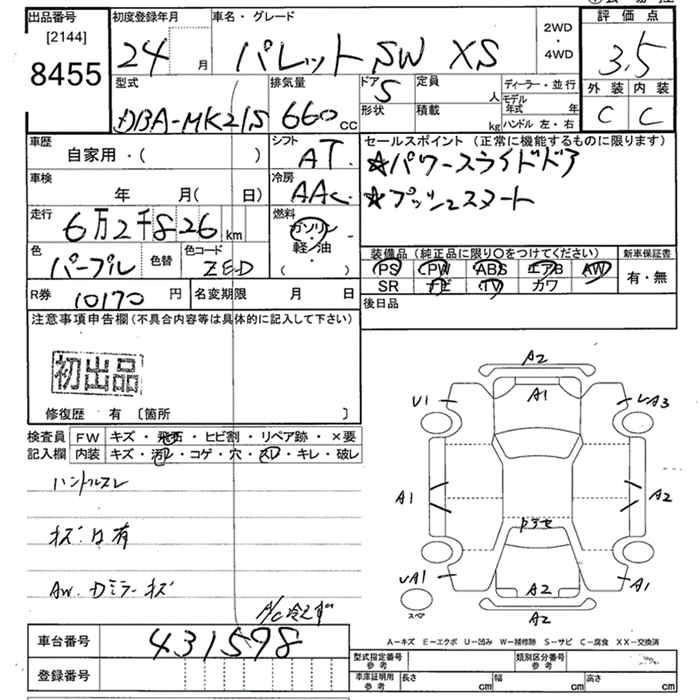 出品番号 初度登録年月 車名・グレード 2WD・4WD 評価点
[2144]
8455
24 月 パレット SW XS 3.5
型式 排気量 ドア 定員 ディーラー・並行 外装 内装
DBA-MK21S 660cc 5 人 モデル年式 年 C C
形状 積載 kg ハンドル 左・右
車歴 シフト セールスポイント (正常に機能するものに限ります)
自家用・( ) AT ☆パワースライドドア
車検 冷房 ☆プッシュスタート
年 月( 日) AAC
走行 燃料
6万2千826km ガソリン・軽油・( )
色 色替 色コード 装備品 (純正品に限り○をつけてください) 新車保証書
パープル ZED PS PW ABS エアB AW 有・無
SR ナビ TV カワ
R券 10170円 名変期限 月 日 後日品
注意事項申告欄(不具合内容等は具体的に記入して下さい)
初出品
修復歴 有 〔箇所 〕
検査員 FW キズ・飛石・ヒビ割・リペア跡・×要
記入欄 内装 キズ・汚レ・コゲ・穴・スレ・キレ・破レ
ハンドルスレ
キズ凹有
AW. Dミラーキズ
A/C冷えず
A2
U1 A1 UA3
A1 A2
UA1 A2 A1
スペア A2
A-キズ E-エクボ U-凹み W-補修跡 S-サビ C-腐食 XX-交換済
車台番号 431598
登録番号
型式指定番号 参考 類別区分番号 参考
車庫証明用 参考 長さ cm 幅 cm 高さ cm